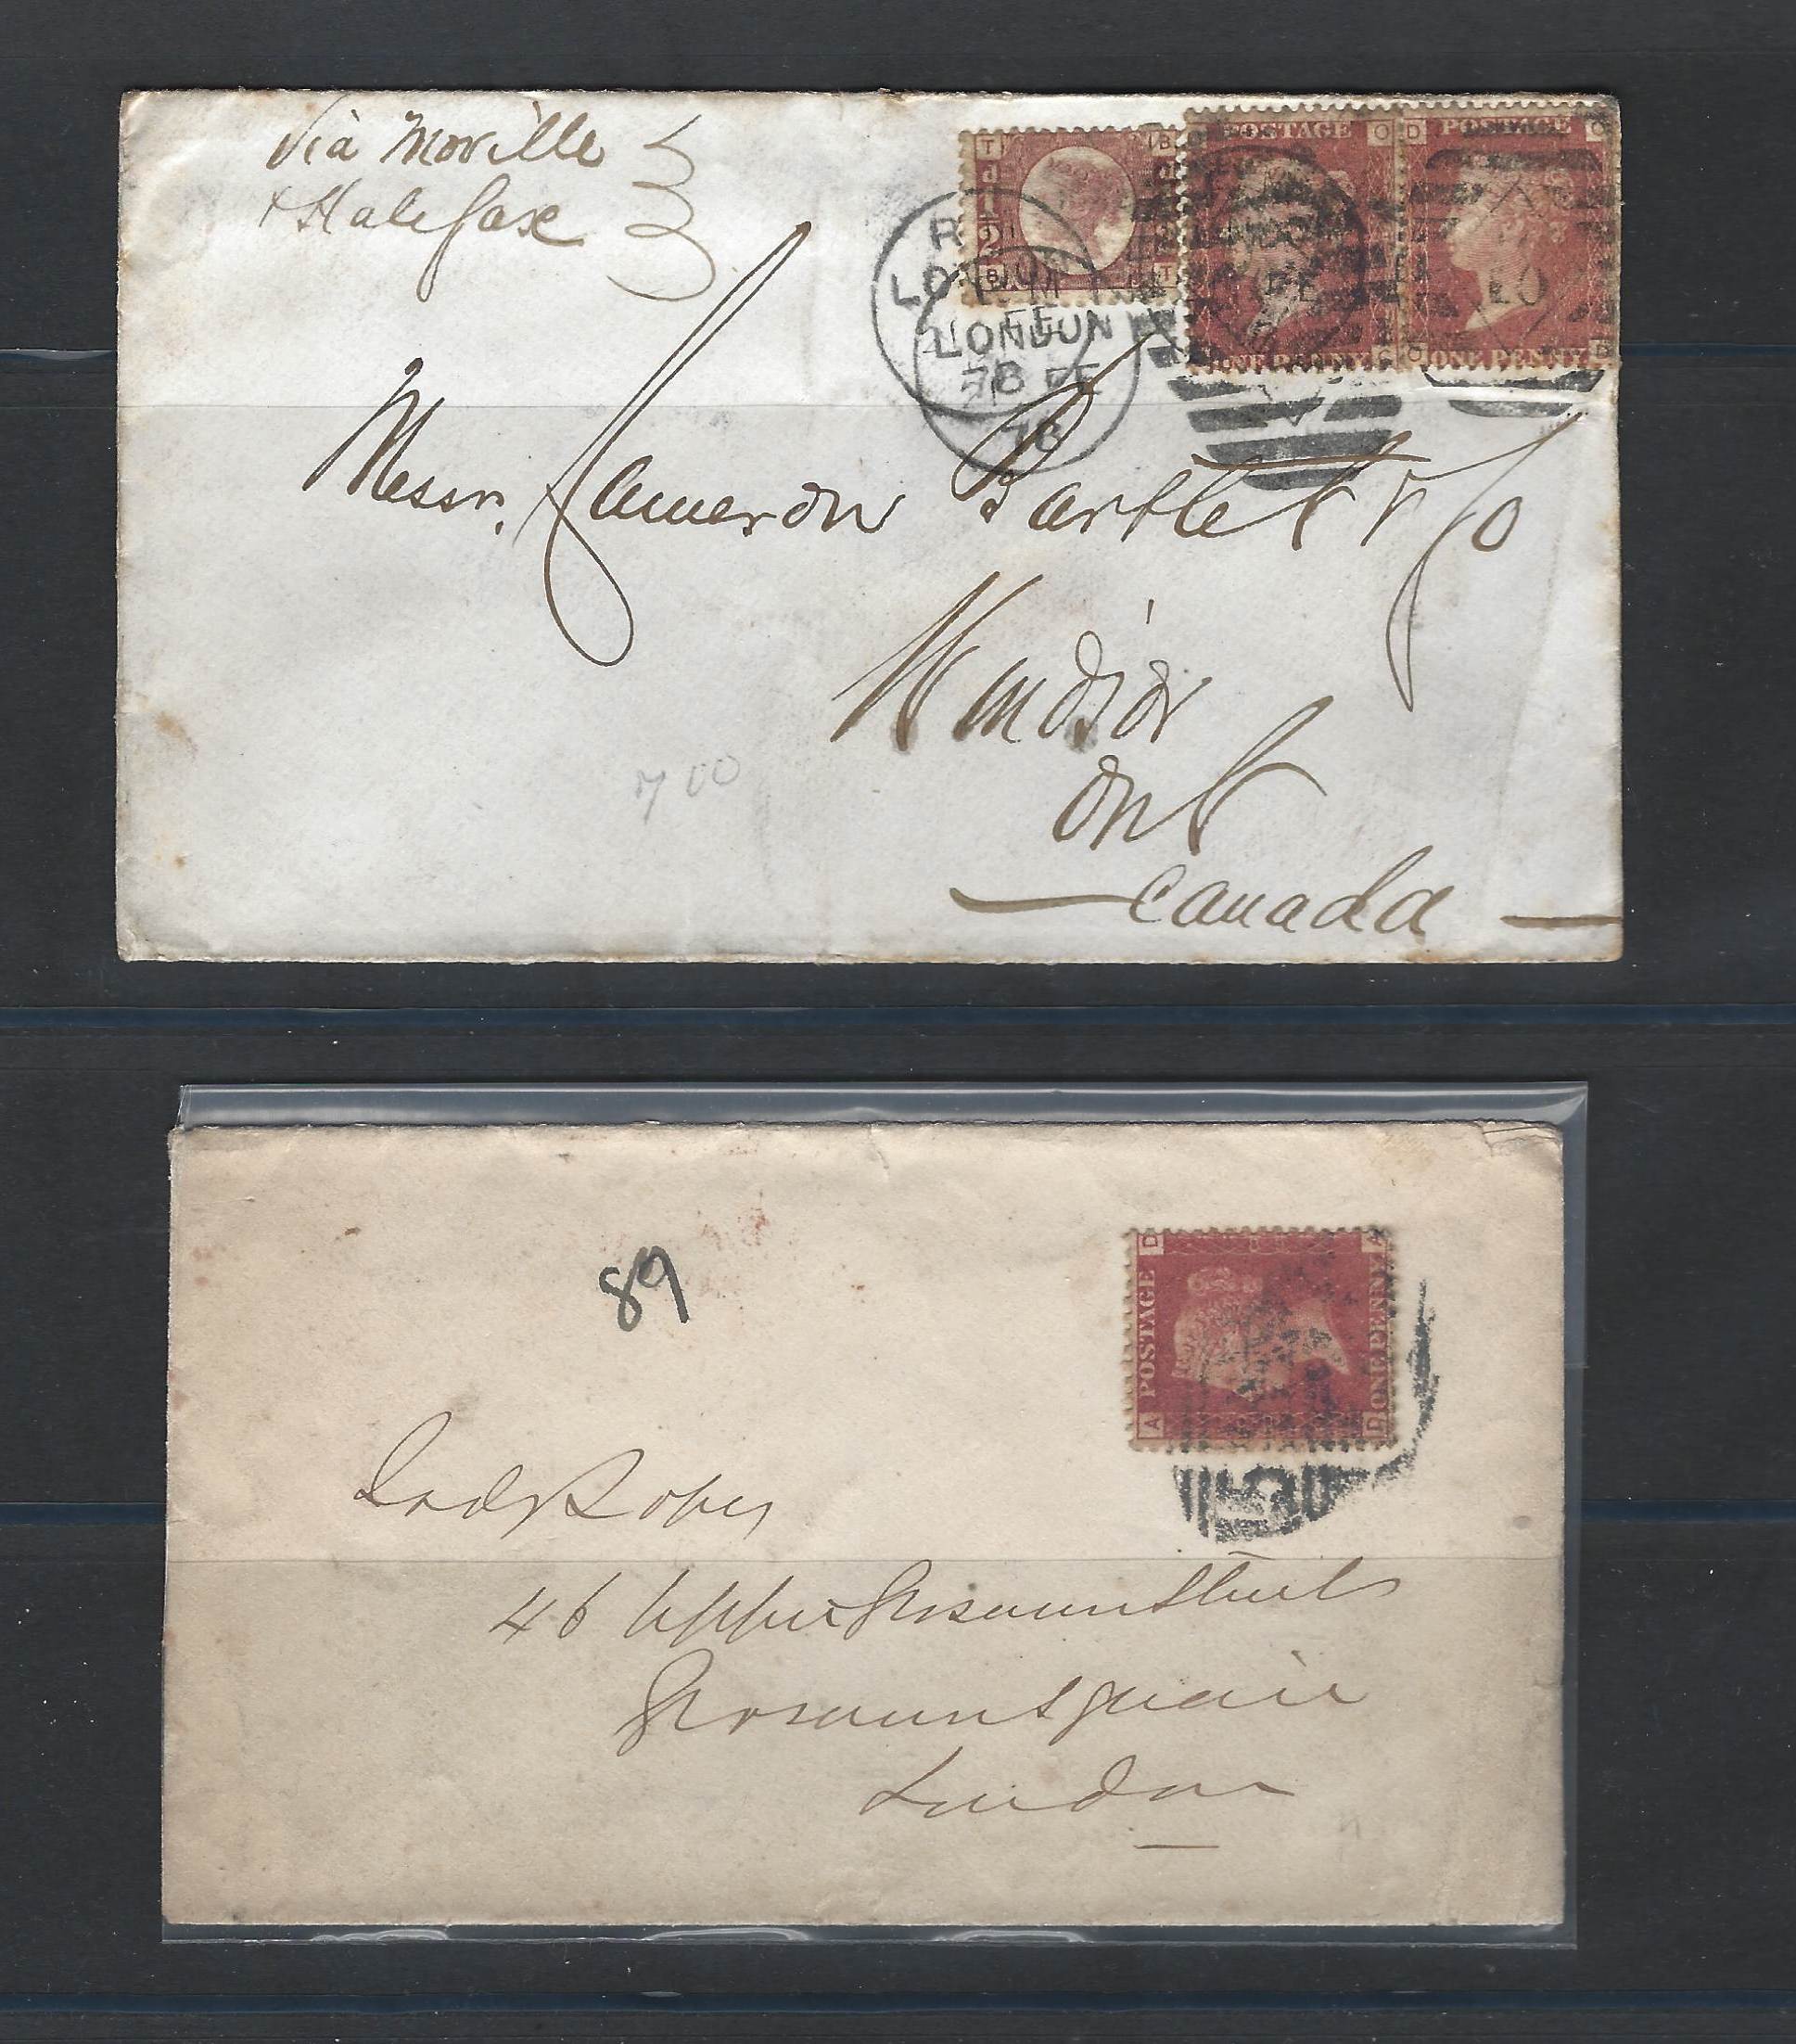 Via Moville
& Halifax
T B
½ d
B T
POSTAGE O D POSTAGE
ONE PENNY ONE PENNY
LONDON
FE
78
LONDON
FE
78
Messrs. Cameron Bartlet & Co
Windsor
Ont
Canada
700
89
D A
POSTAGE
ONE PENNY
A D
Lady
46 Upper Grosvenor Street
Grosvenor Square
London